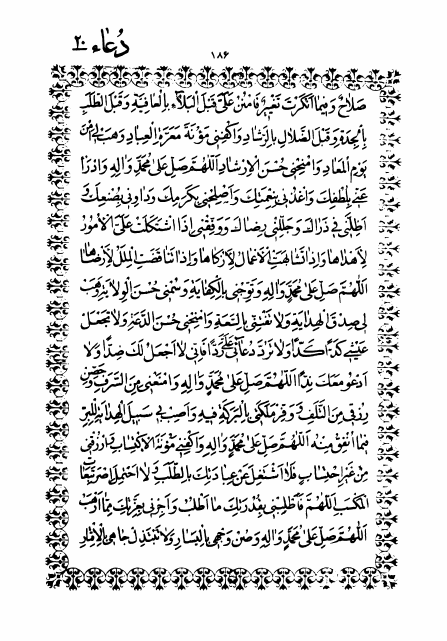 دُعَاء ٢٠
١٨۶
صَلَاحٌ وَفِيمَا أَنْكَرْتَ تَغْيِيرٌ فَامْنُنْ عَلَىَّ قَبْلَ الْبَلَاءِ بِالْعَافِيَةِ وَقَبْلَ الطَّلَبِ
بِالْجِدَةِ وَقَبْلَ الضَّلَالِ بِالرَّشَادِ وَاكْفِنِي مَؤُنَةَ مَعَرَّةِ الْعِبَادِ وَهَبْ لِي أَمْنَ
يَوْمِ الْمَعَادِ وَامْنِحْنِي حُسْنَ الْإِرْشَادِ اَللّٰهُمَّ صَلِّ عَلَىٰ مُحَمَّدٍ وَاٰلِهِ وَادْرَأْ
عَنِّي بِلُطْفِكَ وَاغْذُنِي بِنِعْمَتِكَ وَأَصْلِحْنِي بِكَرَمِكَ وَدَاوِنِي بِصُنْعِكَ وَ
أَظِلَّنِي فِي ذَرَاكَ وَجَلِّلْنِي رِضَاكَ وَوَفِّقْنِي إِذَا اشْتَكَلَتْ عَلَىَّ الْأُمُورُ
لِأَهْدَاهَا وَإِذَا تَشَابَهَتِ الْأَعْمَالُ لِأَزْكَاهَا وَإِذَا تَنَاقَضَتِ الْمِلَلُ لِأَرْضَاهَا
اَللّٰهُمَّ صَلِّ عَلَىٰ مُحَمَّدٍ وَاٰلِهِ وَتَوِّجْنِي بِالْكِفَايَةِ وَسُمْنِي حُسْنَ الْوِلَايَةِ وَهَبْ
لِي صِدْقَ الْهِدَايَةِ وَلَا تَفْتِنِّي بِالسَّعَةِ وَامْنِحْنِي حُسْنَ الدَّعَةِ وَلَا تَجْعَلْ
عَيْشِي كَدًّا كَدًّا وَلَا تَرُدَّ دُعَائِي عَلَىَّ رَدًّا فَإِنِّي لَا أَجْعَلُ لَكَ ضِدًّا وَلَا
أَدْعُو مَعَكَ نِدًّا اَللّٰهُمَّ صَلِّ عَلَىٰ مُحَمَّدٍ وَاٰلِهِ وَامْنَعْنِي مِنَ السَّرَفِ وَحَصِّنْ
رِزْقِي مِنَ التَّلَفِ وَوَفِّرْ مَلَكَتِي بِالْبَرَكَةِ فِيهِ وَأَصِبْ بِي سَبِيلَ الْهِدَايَةِ لِلْبِرِّ
فِيمَا أُنْفِقُ مِنْهُ اَللّٰهُمَّ صَلِّ عَلَىٰ مُحَمَّدٍ وَاٰلِهِ وَاكْفِنِي مَؤُنَةَ الْاِكْتِسَابِ وَارْزُقْنِي
مِنْ غَيْرِ احْتِسَابٍ فَلَا أَشْتَغِلَ عَنْ عِبَادَتِكَ بِالطَّلَبِ وَلَا أَحْتَمِلَ إِصْرَ تَبِعَاتِ
الْمَكْسَبِ اَللّٰهُمَّ فَأَطْلِبْنِي بِقُدْرَتِكَ مَا أَطْلُبُ وَأَجِرْنِي بِعِزَّتِكَ مِمَّا أَرْهَبُ
اَللّٰهُمَّ صَلِّ عَلَىٰ مُحَمَّدٍ وَاٰلِهِ وَصُنْ وَجْهِي بِالْيَسَارِ وَلَا تَبْتَذِلْ جَاهِي بِالْإِقْتَارِ